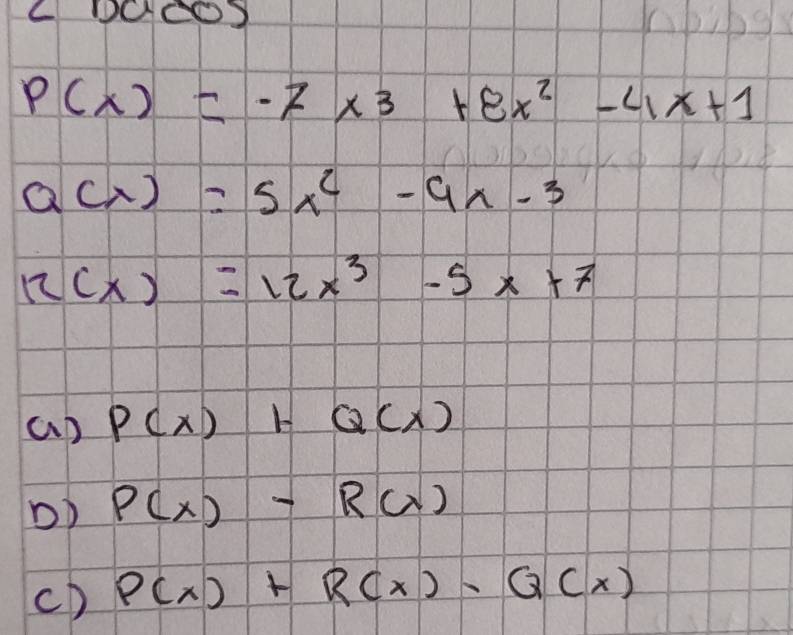 2 Dados
P(x) = -7 x3 +8x² -4x+1
Q(x) = 5x² -9x -3
R(x) = 12x³ -5x +7
a) P(x) + Q(x)
b) P(x) - R(x)
c) P(x) + R(x) - Q(x)